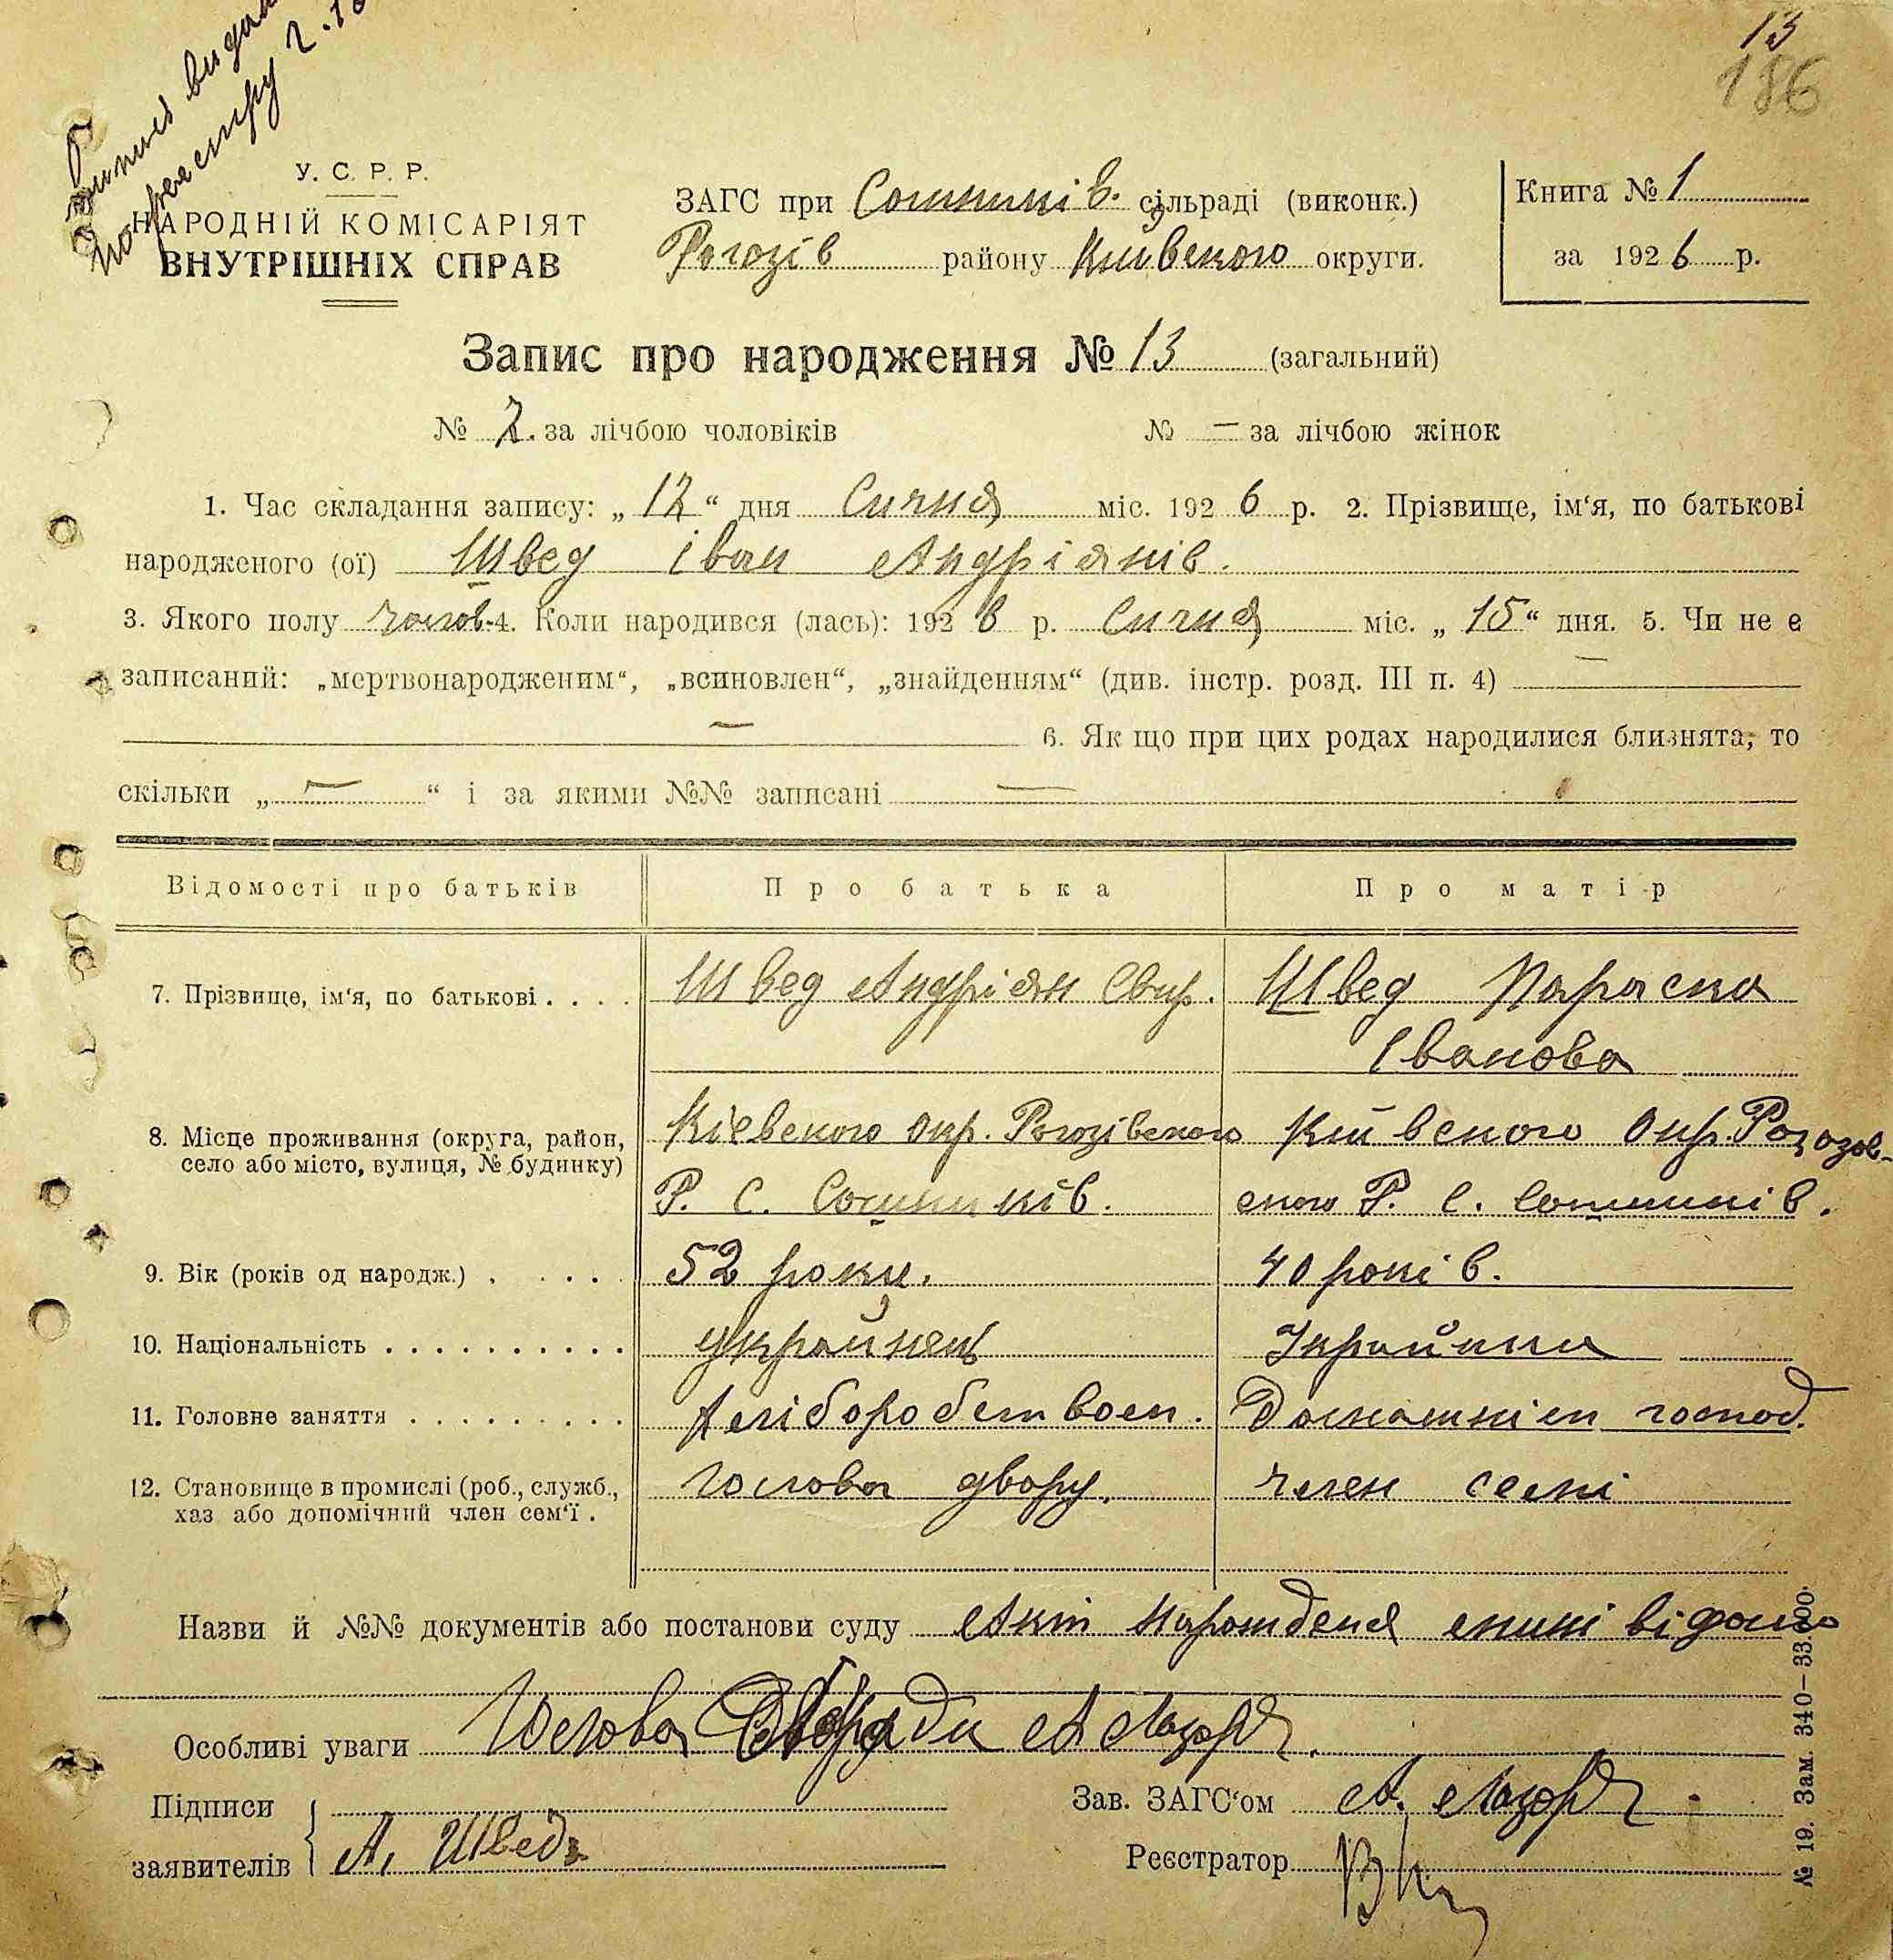 13
186
У. С. Р. Р.
НАРОДНІЙ КОМІСАРІЯТ
ВНУТРІШНІХ СПРАВ
ЗАГС при Сошників. сільраді (виконк.)
Рогозів району Київського округи.
Книга № 1
за 1926 р.
Запис про народження № 13 (загальний)
№ 7. за лічбою чоловіків № — за лічбою жінок
1. Час складання запису: „12“ дня Січня міс. 1926 р. 2. Прізвище, ім‘я, по батькові
народженого (ої) Швед Іван Андріянів.
3. Якого полу чолов. 4. Коли народився (лась): 1926 р. Січня міс. „15“ дня. 5. Чи не є
записаний: „мертвонародженим“, „всиновлен“, „знайденням“ (див. інстр. розд. III п. 4) —
— 6. Як що при цих родах народилися близнята, то
скільки „—“ і за якими №№ записані —
Відомості про батьків Про батька Про матір
7. Прізвище, ім‘я, по батькові . . . . Швед Андріян Свир. Швед Параска
Іванова
8. Місце проживання (округа, район, село або місто, вулиця, № будинку) Кіевского Окр. Рогозівского Київского Окр. Рогозов-
Р. С. Сошників. ского Р. С. Сошників.
9. Вік (років од народж.) . . . . . 52 роки. 40 років.
10. Національність . . . . . . . . . . українец Українка
11. Головне заняття . . . . . . . . . Хліборобством. Домашнім господ.
12. Становище в промислі (роб., служб., голова двору. член семі
хаз або допомічний член сем‘ї .
Назви й №№ документів або постанови суду Акт народженя
Особливі уваги Голова
Підписи
заявителів А. Шведъ
Зав. ЗАГС‘ом А.
Реєстратор
№ 19. Зам. 340—33.000.